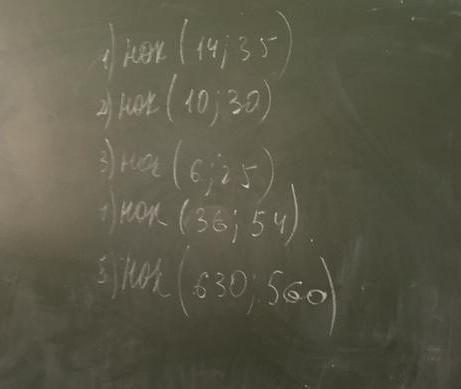 1) нок (14; 35)
2) нок (10; 30)
3) нок (6; 25)
4) нок (36; 54).
5) нок (630; 560)